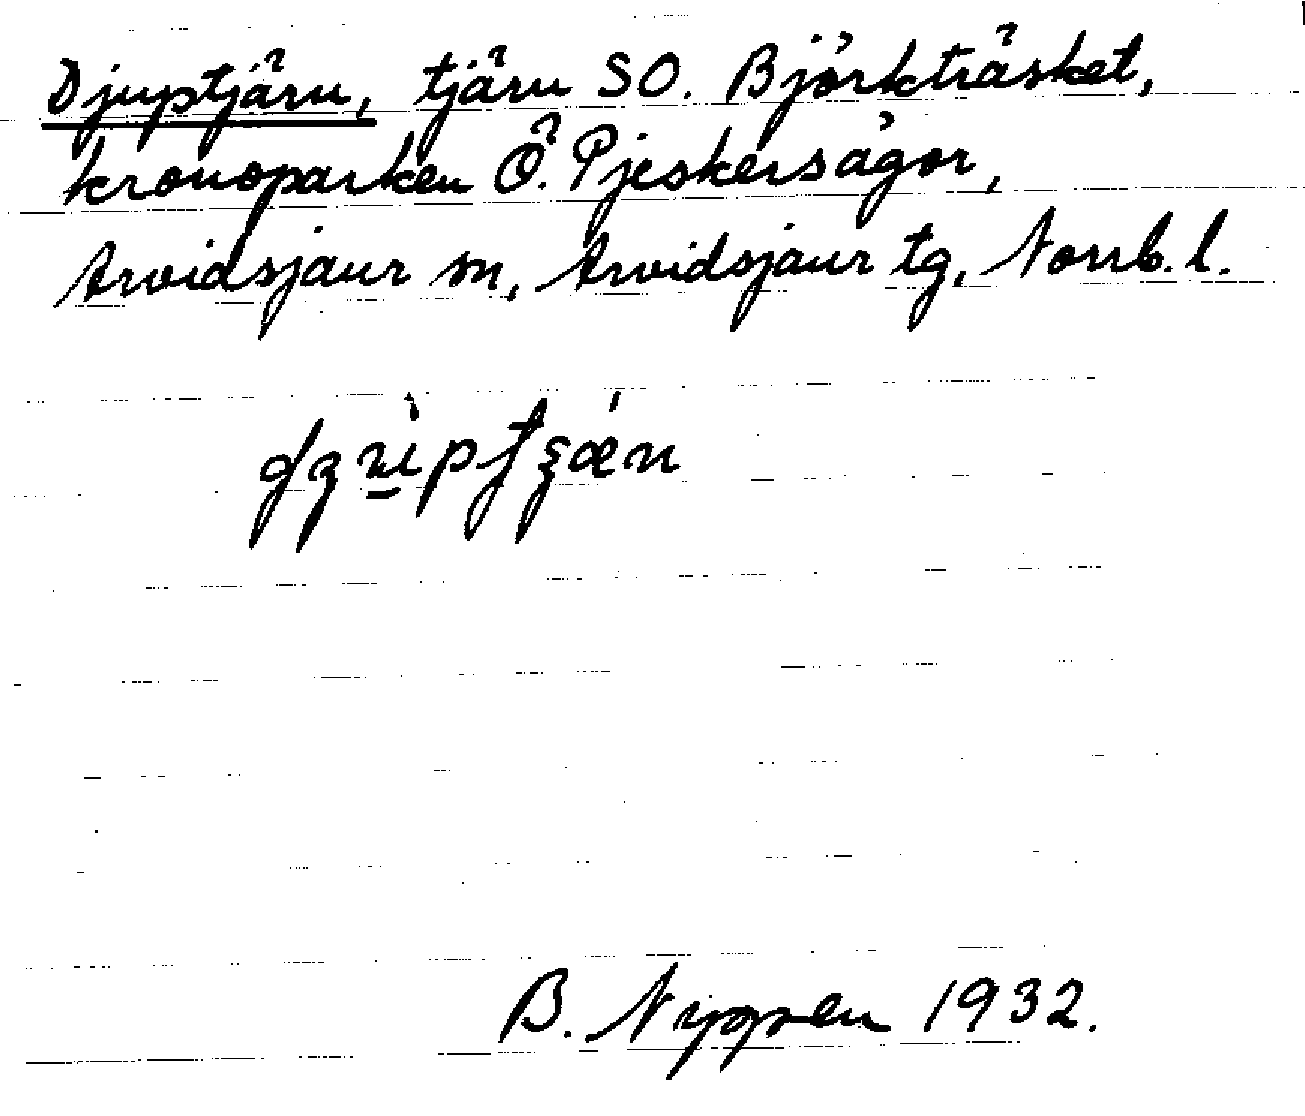 Djuptjärn, tjärn SO. Björkträsket,
kronoparken Ö. Pjeskersågor,
Arvidsjaur sn, Arvidsjaur tg, Norrb. l.
B. Nyggren 1932.